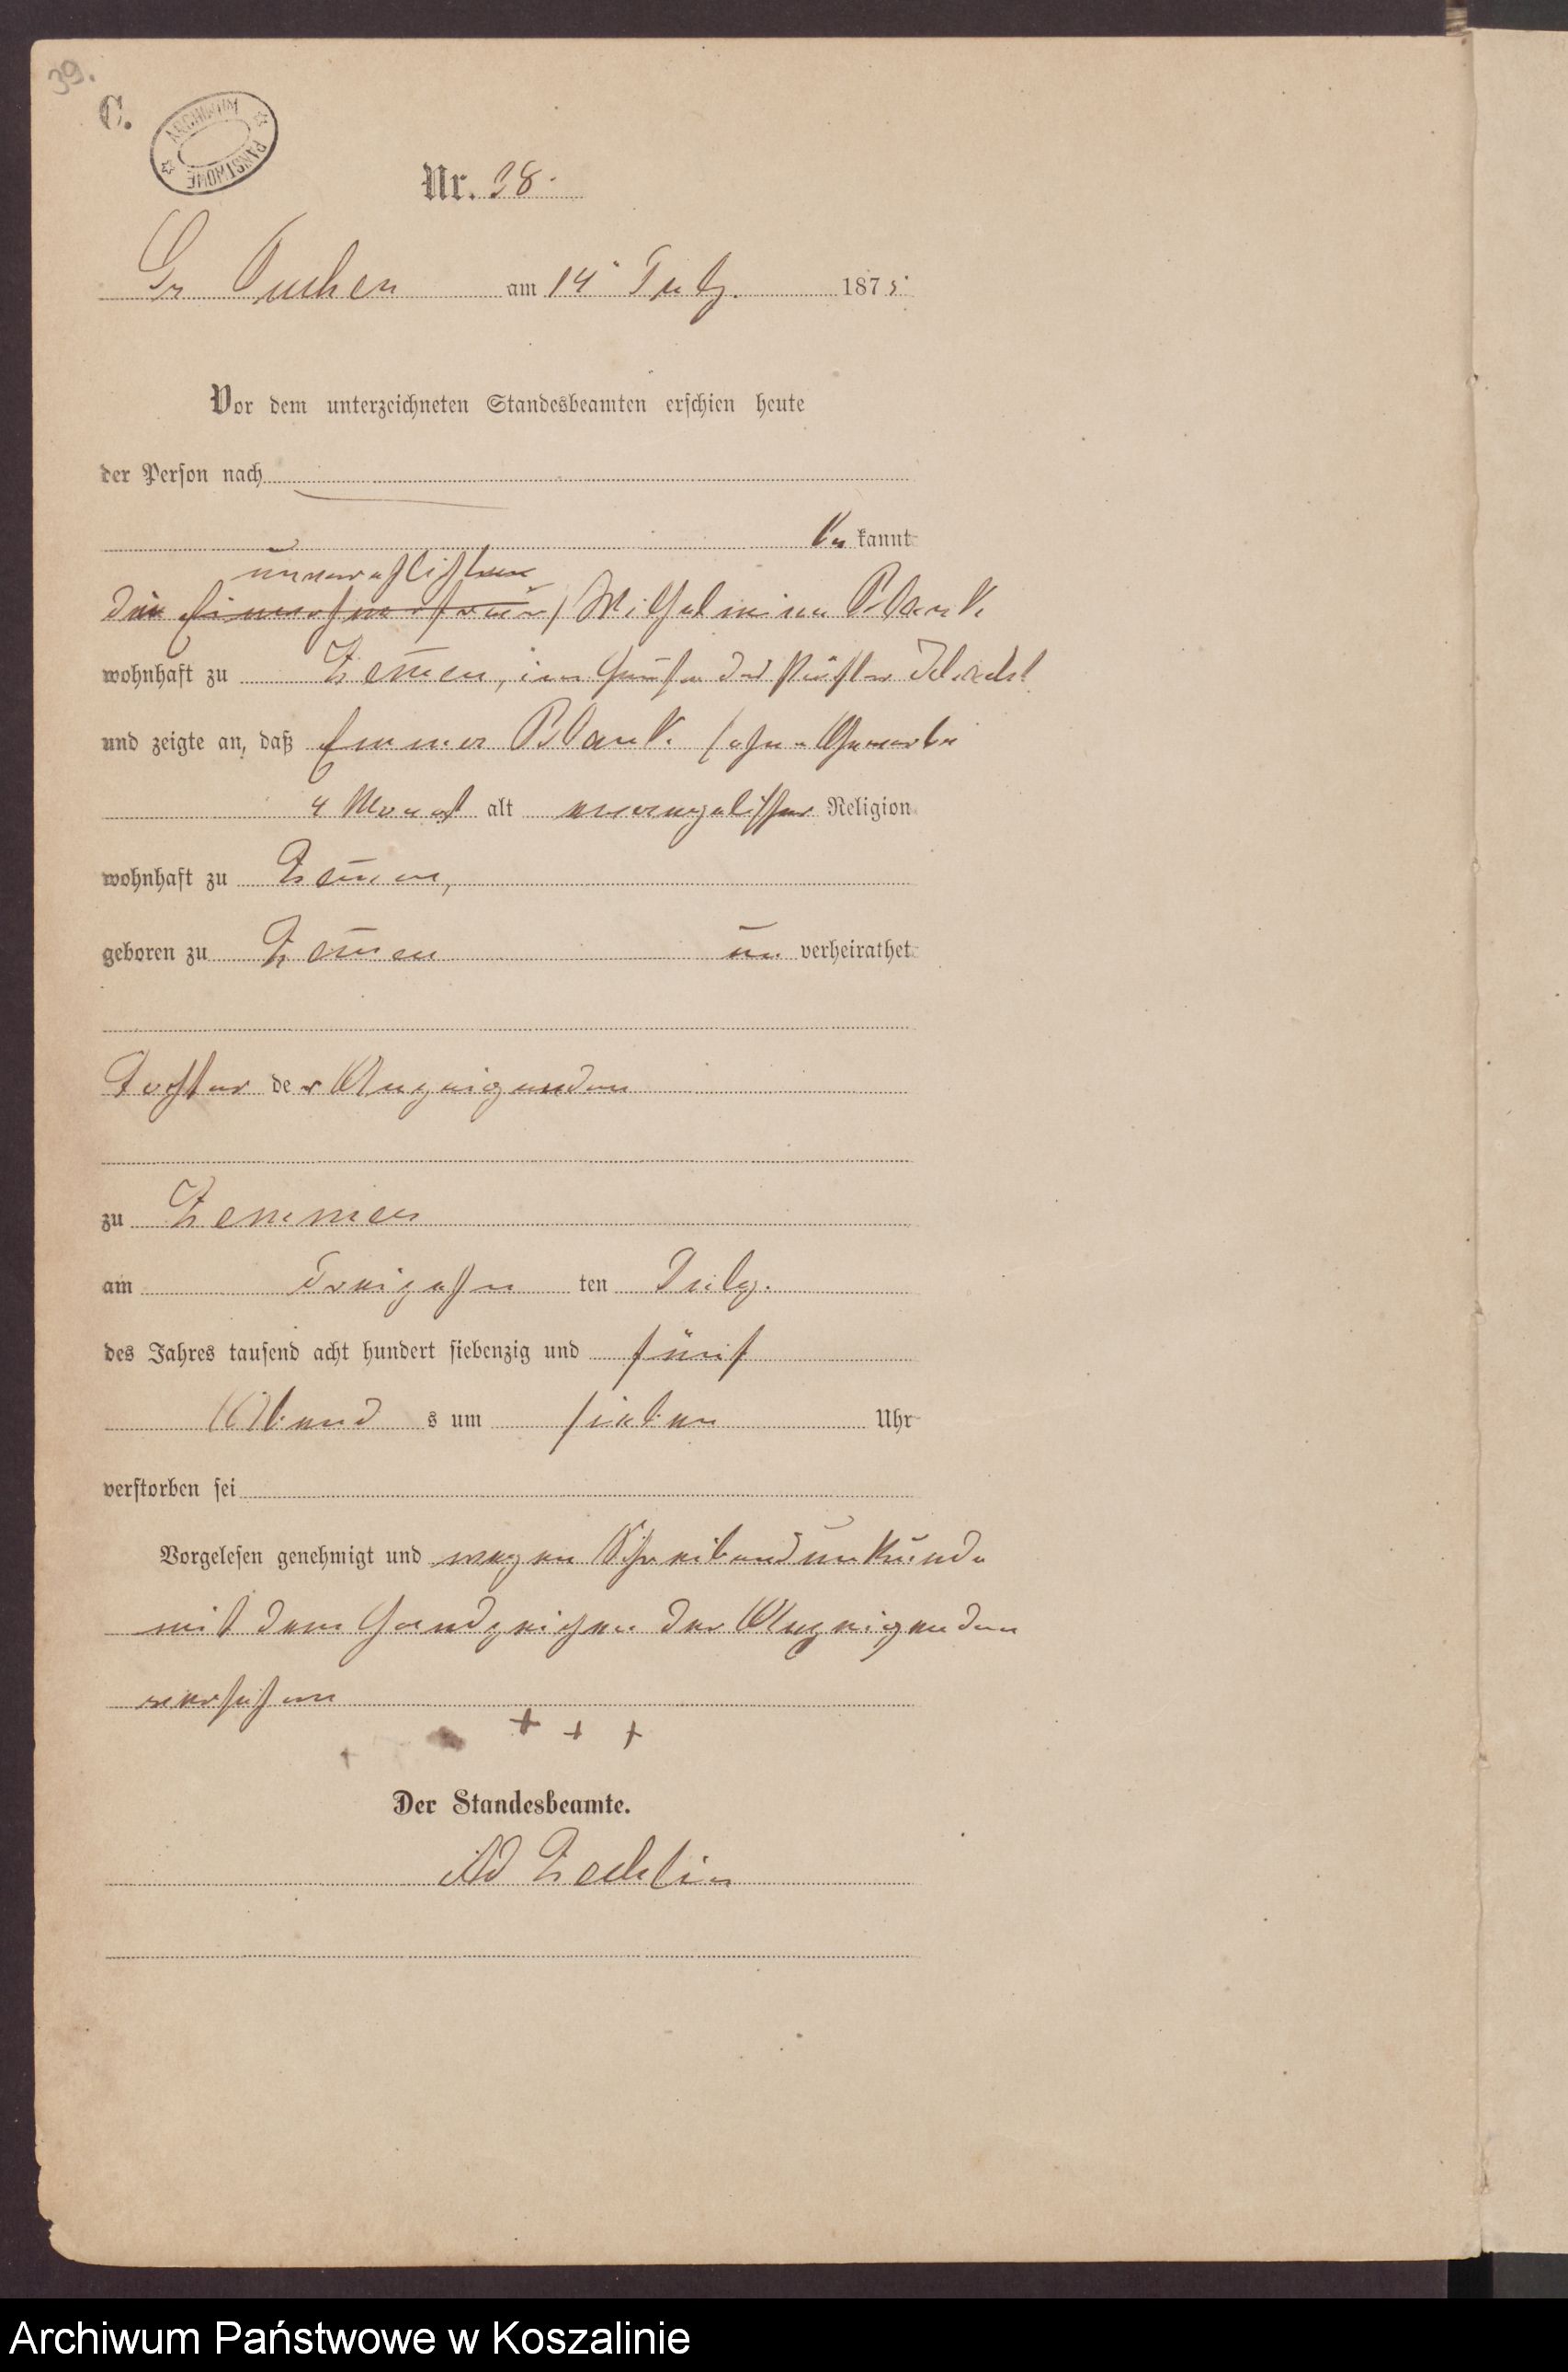 39.
C.
ARCHIWUM PAŃSTWOWE
Nr. 38.
Gr Tuchen am 14 July. 1875
Vor dem unterzeichneten Standesbeamten erschien heute
der Person nach
be kannt
unverehelichte
die Einwohnerfrau Wilhelmine Blank
wohnhaft zu Zem̄en, im Hause des
und zeigte an, daß Emma Blank ohne Gewerbe
4 Monat alt evangelischer Religion
wohnhaft zu Zem̄en,
geboren zu Zem̄en un verheirathet
Tochter der Anzeigenden
zu Zemmen
am dreizehn ten July.
des Jahres tausend acht hundert siebenzig und fünf
Abend s um sieben Uhr
verstorben sei
Vorgelesen genehmigt und wegen Schreibensunkunde
mit dem Handzeichen der Anzeigenden
versehen
+ + +
Der Standesbeamte.
Ad Zechlin
Archiwum Państwowe w Koszalinie